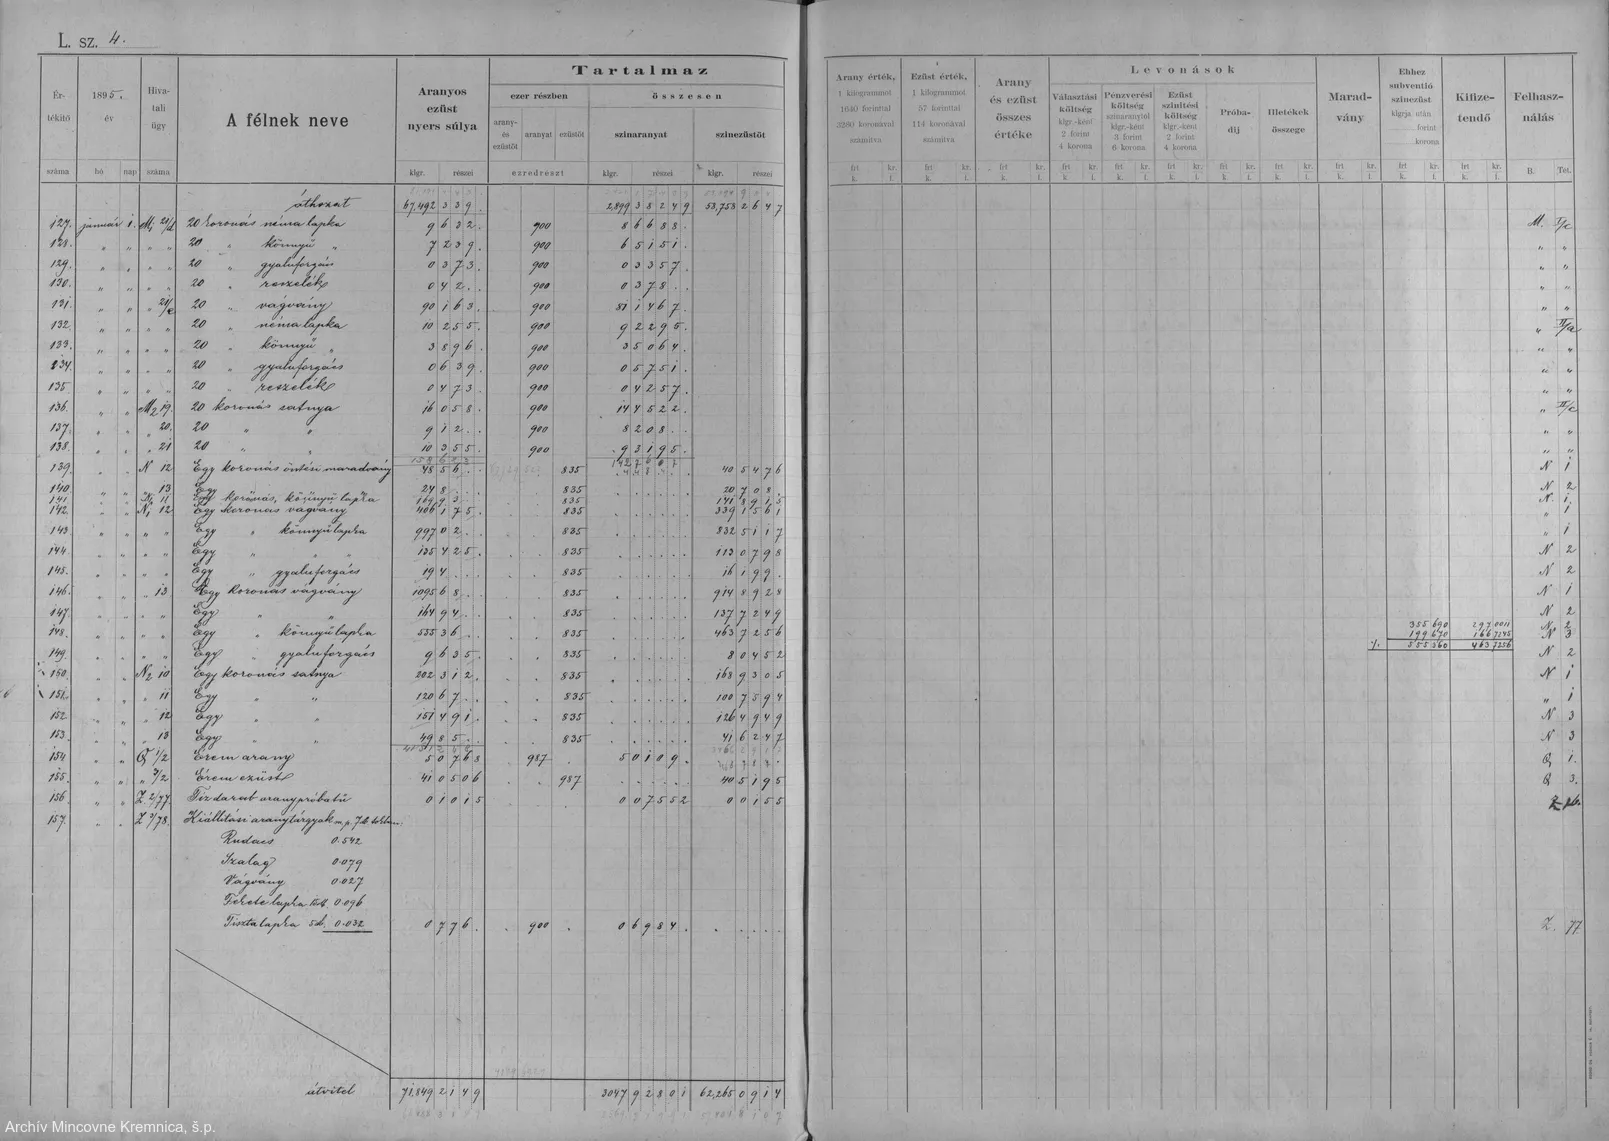 L. sz. 4.
Ér-
tékitő
száma
1895. év
hó nap
Hiva-
tali
ügy
száma
A félnek neve
Aranyos
ezüst
nyers súlya
klgr. részei
Tartalmaz
ezer részben
arany-
és
ezüstöt
aranyat ezüstöt
ezredrészt
összesen
szinaranyat
klgr. részei
szinezüstöt
klgr. részei
Arany érték,
1 kilogrammot
1640 forinttal
3280 koronával
számitva
Ezüst érték,
1 kilogrammot
57 forinttal
114 koronával
számitva
Arany
és ezüst
összes
értéke
Levonások
Választási
költség
klgr.-ként
2 forint
4 korona
Pénzverési
költség
szinaranytól
klgr.-ként
3 forint
6 korona
Ezüst
szinitési
költség
klgr.-ként
2 forint
4 korona
Próba-
díj
Illetékek
összege
Marad-
vány
Ehhez
subventió
szinezüst
klgrja után
forint
korona
Kifize-
tendő
Felhasz-
nálás
B. Tét.
frt kr.
k. f.
áthozat 67,492 339. 2,899 38249 53,753 2647
127. január 1. M1 21/d 20 koronás néma lapka 9 632. 900 8 6688. M. I/c
128. " " " " 20 " könnyű " 7 239. 900 6 5151. " "
129. " " " " 20 " gyaluforgács 0 373. 900 0 3357. " "
130. " " " " 20 " reszelék 0 42.. 900 0 378.. " "
131. " " " 21/e 20 " vágvány 90 163. 900 81 1467. " "
132. " " " " 20 " néma lapka 10 255. 900 9 2295. " II/a
133. " " " " 20 " könnyű " 3 896. 900 3 5064. " "
134. " " " " 20 " gyaluforgács 0 639. 900 0 5751. " "
135. " " " " 20 " reszelék 0 473. 900 0 4257. " "
136. " " M2 19. 20 koronás satnya 16 058. 900 14 4522. " II/c
137. " " " 20. 20 " " 9 12.. 900 8 208.. " "
138. " " " 21 20 " " 10 355. 900 9 3195. " "
139. " " N 12 Egy koronás öntési maradvány 48 56.. 835 40 5476 N 1
140. " " " 13 Egy 24 8... 835 20 708. N 2
141 " " N1 11 Egy koronás, könnyű lapka 169 93.. 835 141 8915 N. 1
142. " " N1 12 Egy koronás vágvány 406 175. 835 339 1561 " 1
143. " " " " Egy " könnyűlapka 997 02.. 835 832 5117 " 1
144. " " " " Egy " " 135 425. 835 113 0798 N 2
145. " " " " Egy " gyaluforgács 19 4... 835 16 199. N 2
146. " " " 13 Egy koronás vágvány 1095 68.. 835 914 8928 N 1
147. " " " " Egy " " 164 94.. 835 137 7249 N 2
148. " " " " Egy " könnyűlapka 555 36.. 835 463 7256 N 2
N 3
355 690 297 0011
199 670 166 7245
555 360 463 7256
149. " " " " Egy " gyaluforgács 9 635. 835 8 0452 N 2
150. " " N2 10 Egy koronás satnya 202 312. 835 168 9305 N 1
151. " " " 11 Egy " " 120 67.. 835 100 7594 " 1
152 " " " 12 Egy " " 151 491. 835 126 4949 N 3
153. " " " 13 Egy " " 49 85.. 835 41 6247 N 3
154 " " Q 1/2 Érem arany 5 0768 987 5 0109. Q 1.
155. " " " 3/2 Érem ezüst 41 0506 987 40 5195 Q 3.
156 " " Z. 2/77. Tiz darab aranypróbatű 0 1015 0 07552 0 0155
157. " " Z 3/78. Kiállitási aranytárgyak
Rudacs 0.542
Szalag 0.079
Vágvány 0.027
Fekete lapka 0.096
Tisztalapka 5db 0.032 0 776. 900 0 6984. Z. 77
átvitel 71,849 2149 3047 92801 62,265 0914
Archív Mincovne Kremnica, š.p.